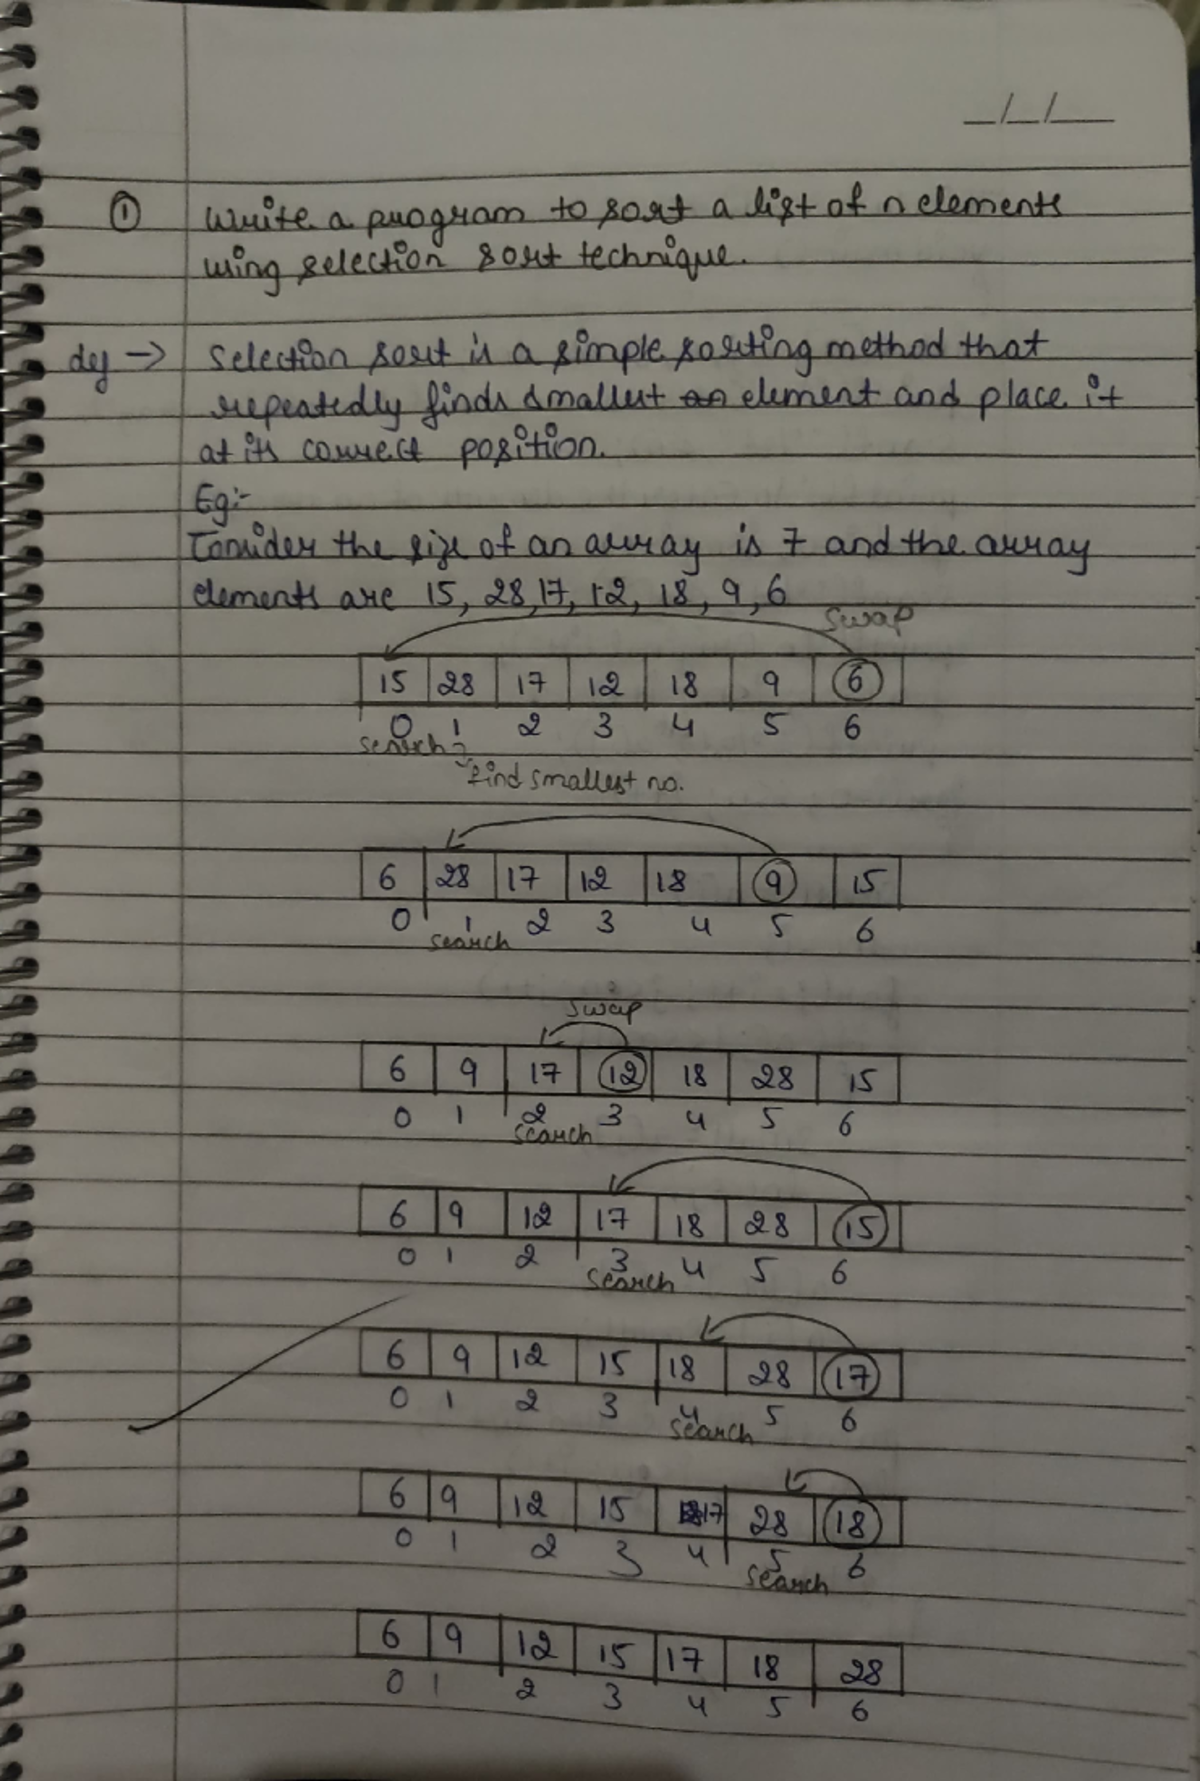 _/_/_
① Write a program to sort a list of n elements
using selection sort technique.
def → Selection sort is a simple sorting method that
repeatedly finds smallest element and place it
at its correct position.
Eg:-
Consider the size of an array is 7 and the array
elements are 15, 28, 17, 12, 18, 9, 6
swap
15 28 17 12 18 9 6
0 1 2 3 4 5 6
search
find smallest no.
6 28 17 12 18 9 15
0 1 2 3 4 5 6
search
swap
6 9 17 12 18 28 15
0 1 2 3 4 5 6
search
6 9 12 17 18 28 15
0 1 2 3 4 5 6
search
6 9 12 15 18 28 17
0 1 2 3 4 5 6
search
6 9 12 15 17 28 18
0 1 2 3 4 5 6
search
6 9 12 15 17 18 28
0 1 2 3 4 5 6